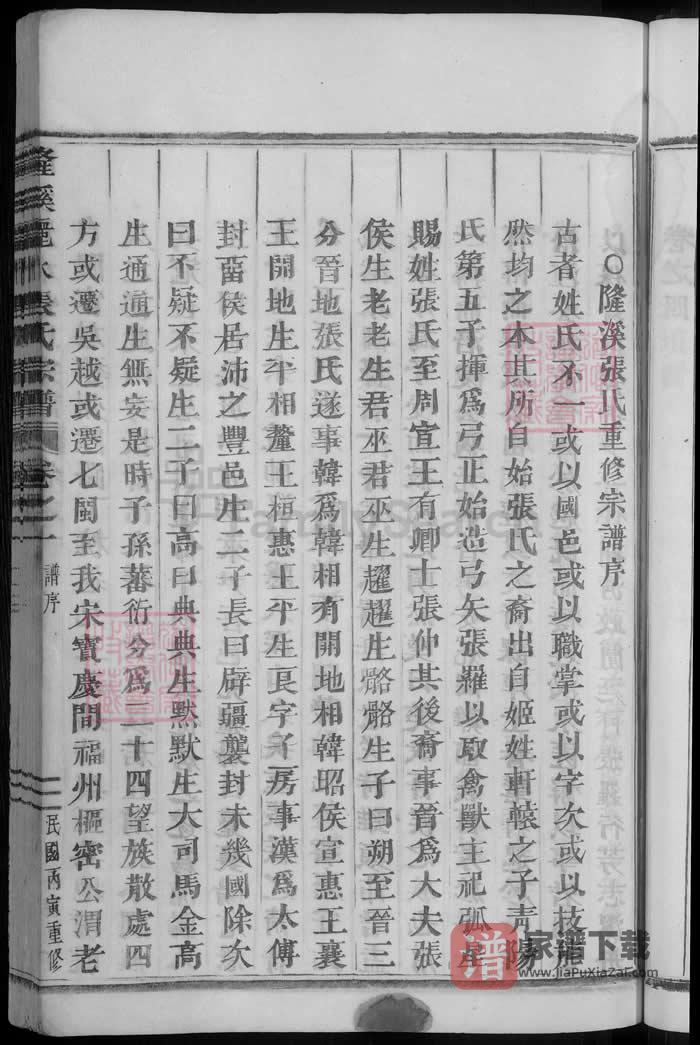 ○隆溪張氏重修宗譜序
古者姓氏不一或以國邑或以職掌或以字次或以技能
然均之本其所自始張氏之裔出自姬姓軒轅之子青陽
氏第五子揮爲弓正始造弓矢張羅以取禽獸主祀弧星
賜姓張氏至周宣王有卿士張仲其後裔事晉爲大夫張
侯生老老生君巫君巫生趯趯生骼骼生子曰朔至晉三
分晉地張氏遂事韓爲韓相有開地相韓昭侯宣惠王襄
王開地生平相釐王桓惠王平生良字子房事漢爲太傅
封畱侯居沛之豐邑生二子長曰辟疆襲封未幾國除次
曰不疑不疑生二子曰高曰典典生默默生大司馬金高
生通通生無妄是時子孫蕃衍分爲二十四望族散處四
方或遷吳越或遷七閩至我宋寶慶間福州樞密公渭老
隆溪 張氏宗譜 卷之一 譜序 民國丙寅重修
譜
家譜下载
www.JiaPuXiaZai.com
FamilySearch